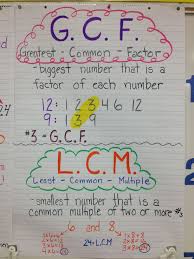 G.C.F.
Greatest - Common - Factor
-biggest number that is a
factor of each number
12: 1 2 3 4 6 12
9: 1 3 9
#3 = G.C.F.
L.C.M.
Least - Common - Multiple
-smallest number that is a
common multiple of two or more #s
6 and 8
24=LCM